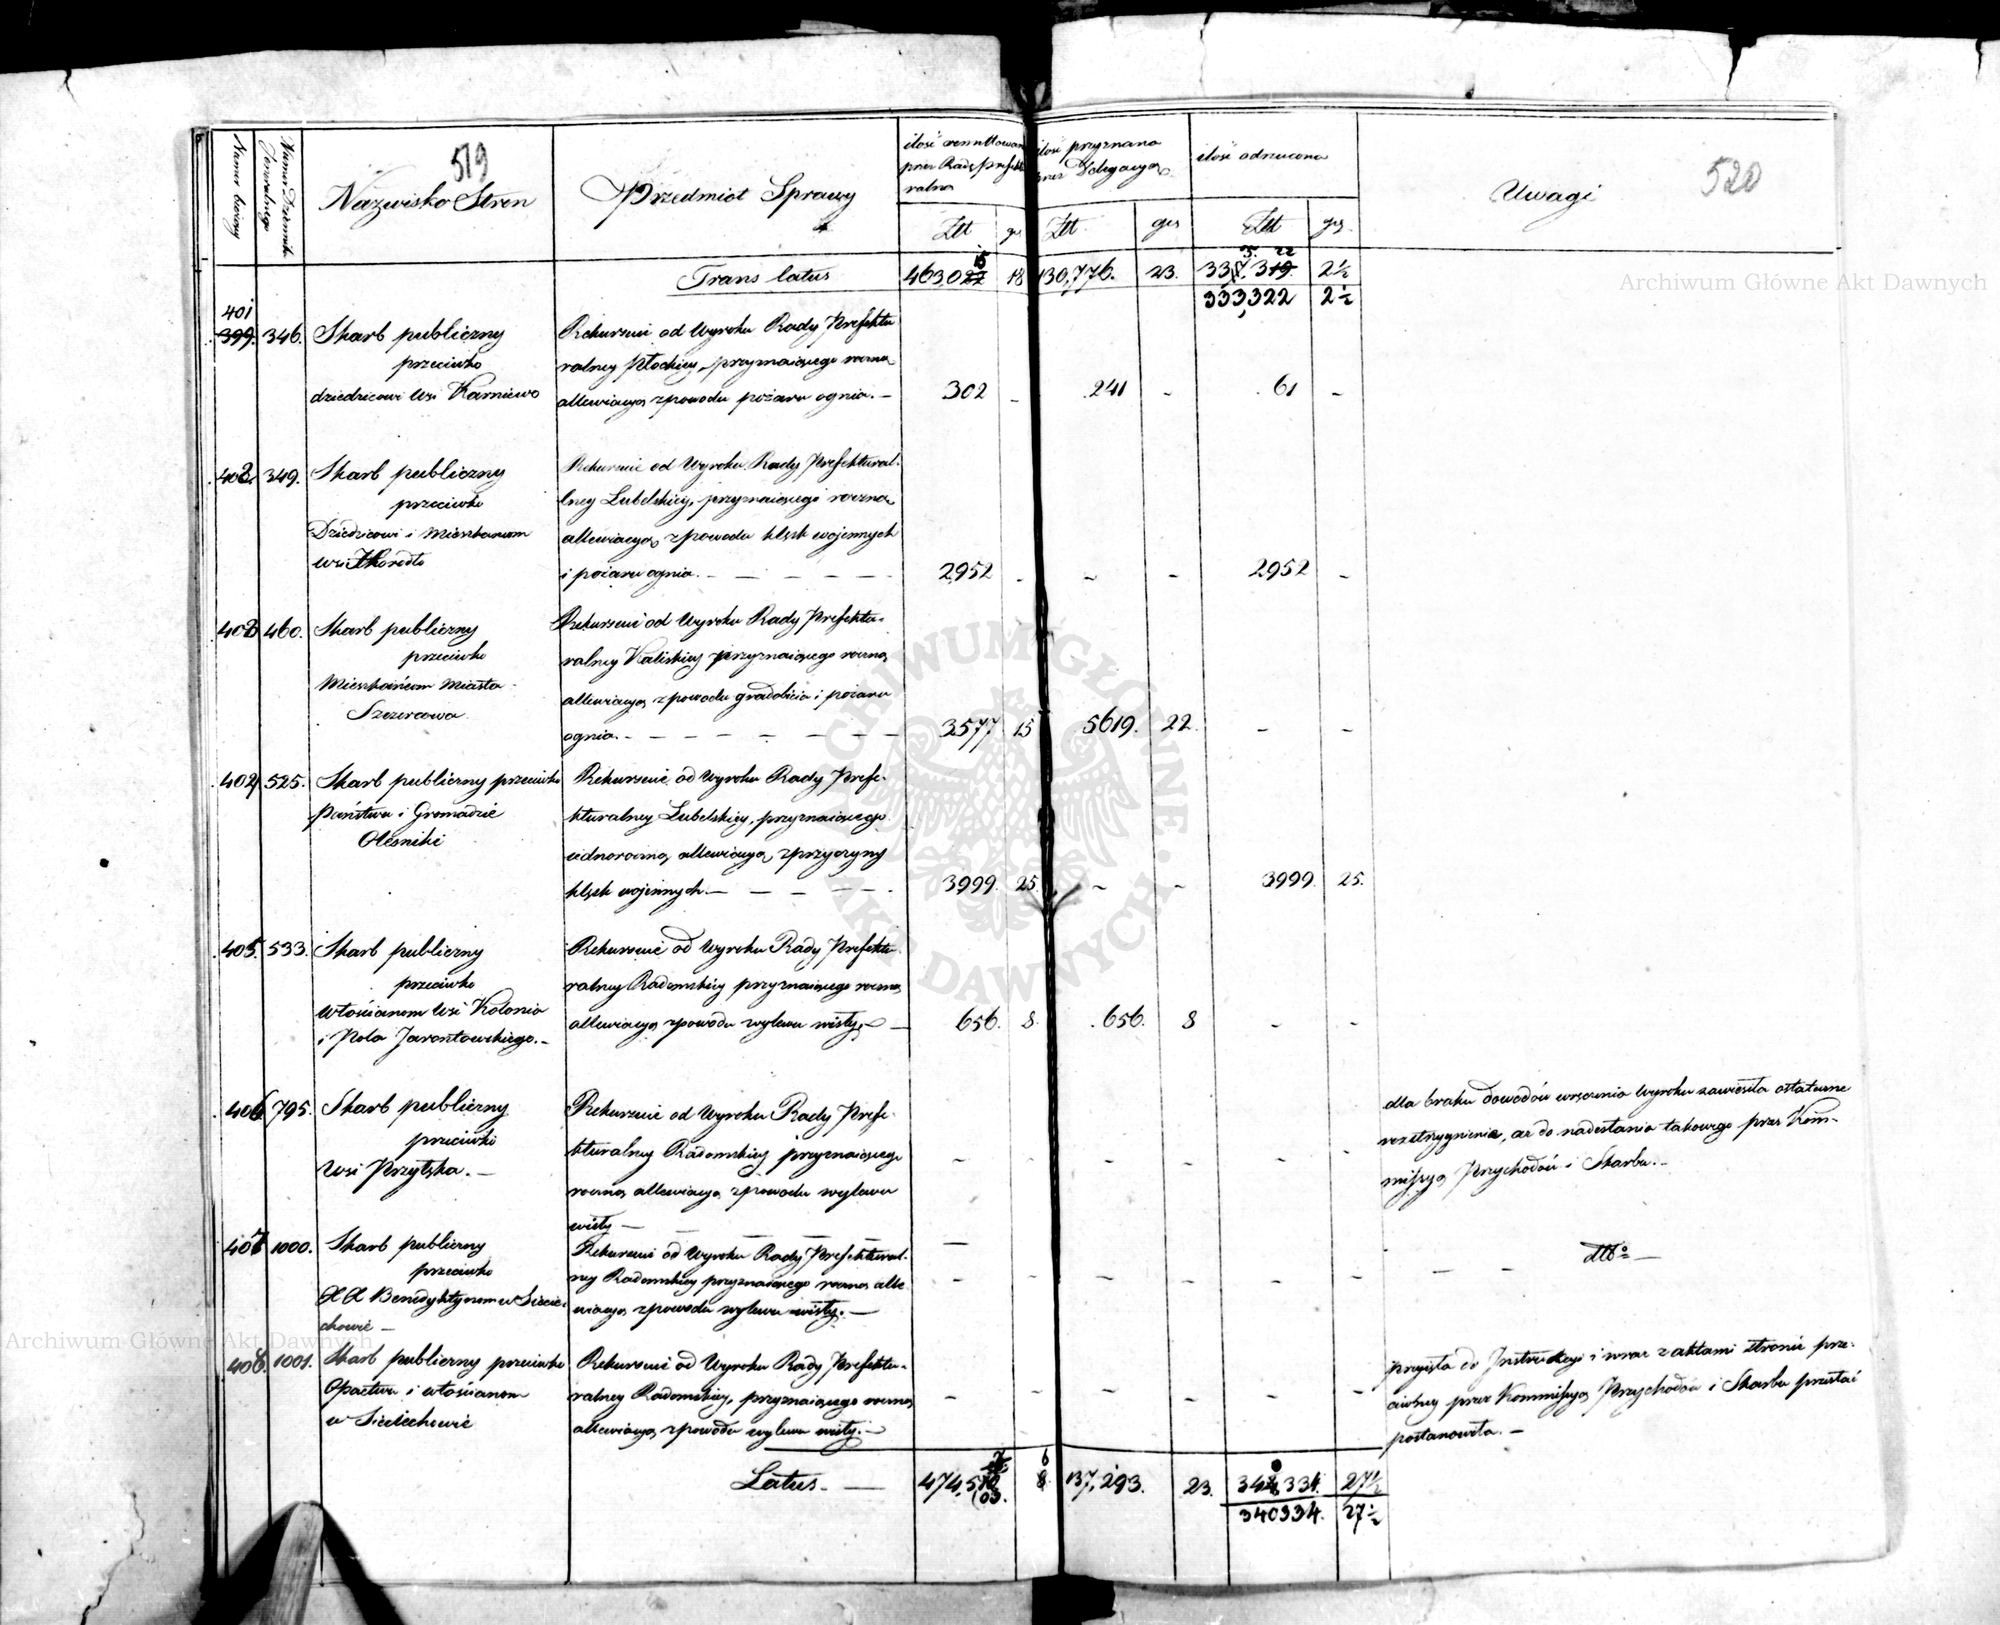 519
520
Numer bieżący
Numer Dziennika Jeneralnego
Nazwisko Stron
Przedmiot Sprawy
ilość
przez Radę Prefektu
ralną
ilość przyznana
przez Delegacyą
ilość odrzucona
Uwagi
Złt gr Złt gr Złt gr
Trans latus 463,0 18 130,776. 23. 2½
333,322 2½
401
399. 346. Skarb publiczny
przeciwko
dziedzicowi Wsi Karniewo
Rekursuie od Wyroku Rady Prefektu
ralney Płockiey, przyznaiącego roczną
allewiacyą z powodu pożaru ognia. — 302 - 241 - 61 -
402. 349. Skarb publiczny
przeciwko
Dziedzicowi i Mieszkancom
Wsi
Rekursuie od Wyroku Rady Prefektural-
lney Lubelskiey, przyznaiącego roczną
allewiacyą z powodu klęsk wojennych
i pożaru ognia. — — — — — 2952 - - - 2952 -
403 460. Skarb publiczny
przeciwko
Mieszkańcom Miasta
Szczercowa
Rekursuie od Wyroku Rady Prefektu-
ralney Kaliskiey przyznaiącego roczną
allewiacyą z powodu gradobicia i pożaru
ognia. — — — — — — — 3577 15 5619. 22. - -
404 525. Skarb publiczny przeciwko
Państwu i Gromadzie
Olesniki
Rekursuie od Wyroku Rady Prefe-
kturalney Lubelskiey, przyznaiącego
iednoroczną allewiacyą z przyczyny
klęsk wojennych — — — — — 3999. 25. - - 3999. 25.
405. 533. Skarb publiczny
przeciwko
Włościanom Wsi Kolonia
i Pola
Rekursuie od Wyroku Rady Prefektu-
ralney Radomskiey przyznaiącego roczną
allewiacyą z powodu wylewu wisły — 656. 8. 656. 8 - -
406 795. Skarb publiczny
przeciwko
Wsi Przyłęka. —
Rekursuie od Wyroku Rady Prefe-
kturalney Radomskiey przyznaiącego
roczną allewiacyą z powodu wylewu
wisły —
dla braku dowodów wręczenia Wyroku zawiesiła ostateczne
rozstrzygnienie, aż do nadesłania takowego przez Kom-
missyą Przychodów i Skarbu. —
407 1000. Skarb publiczny
przeciwko
XX Benedyktynom w Siecie-
chowie —
Rekursuie od Wyroku Rady Prefektural-
ney Radomskiey przyznaiącego roczną alle
wiacyą z powodu wylewu wisły. —
— — dtto —
408. 1001. Skarb publiczny przeciwko
Opactwu i włościanom
w Sieciechowie
Rekursuie od Wyroku Rady Prefektu-
ralney Radomskiey, przyznaiącego roczną
allewiacyą z powodu wylewu wisły. —
przyięta do Instrukcyi i wraz z aktami stronie prze-
ciwney przez Kommissyą Przychodów i Skarbu przesłać
postanowiła. —
Latus — 474,5 137,293. 23. 344,334. 27½
340334. 27½
Archiwum Główne Akt Dawnych
Archiwum Główne Akt Dawnych
ARCHIWUM GŁÓWNE AKT DAWNYCH